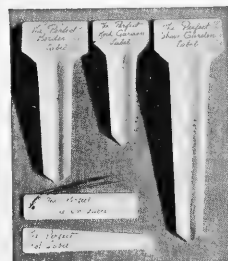 The Perfect
Border
Label
The Perfect
Rock Garden
Label
The Perfect
Show Garden
Label
The Perfect
Label
The Perfect
Pot Label